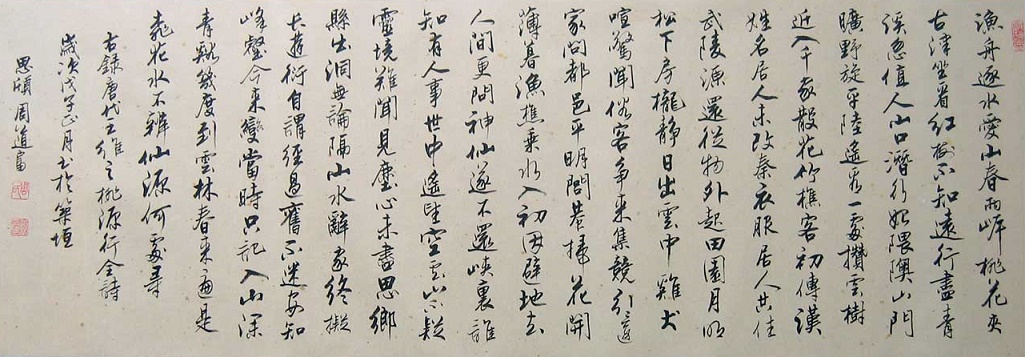 漁舟逐水愛山春兩岸桃花夾
古津坐看紅樹不知遠行盡青
溪忽值人山口潛行始隈隩山門
曠野旋平陸遙看一處攢雲樹
近入千家散花竹樵客初傳漢
姓名居人未改秦衣服居人共住
武陵源還從物外起田園月明
松下房櫳靜日出雲中雞犬
喧驚聞俗客爭來集競引還
家問都邑平明閭巷掃花開
薄暮漁樵乘水入初因避地去
人間更問神仙遂不還峽裏誰
知有人事世中遙望空雲山不疑
靈境難聞見塵心未盡思鄉
縣出洞無論隔山水辭家終擬
長遊衍自謂經過舊不迷安知
峰壑今來變當時只記入山深
青谿幾度到雲林春來遍是
桃花水不辨仙源何處尋
右錄唐代王維之桃源行全詩
歲次戊子正月书於築垣
思頤周道富